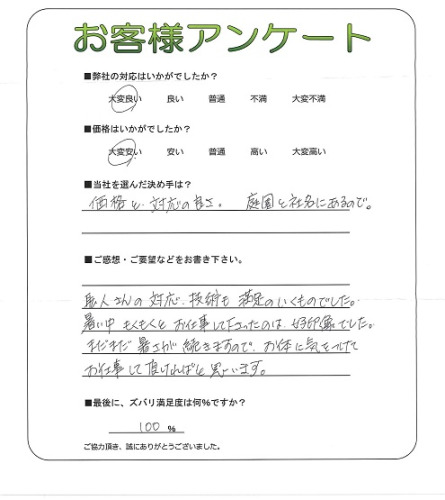 お客様アンケート
■弊社の対応はいかがでしたか?
大変良い 良い 普通 不満 大変不満
■価格はいかがでしたか?
大変安い 安い 普通 高い 大変高い
■当社を選んだ決め手は?
価格と、対応の良さ。 庭園と社名にあるので。
■ご感想・ご要望などをお書き下さい。
職人さんの対応、技術も 満足のいくものでした。
暑い中 もくもくと お仕事して下さったのは、好印象でした。
まだまだ 暑さが 続きますので、お体に気をつけて
お仕事して頂ければと思います。
■最後に、ズバリ満足度は何%ですか?
100 %
ご協力頂き、誠にありがとうございました。